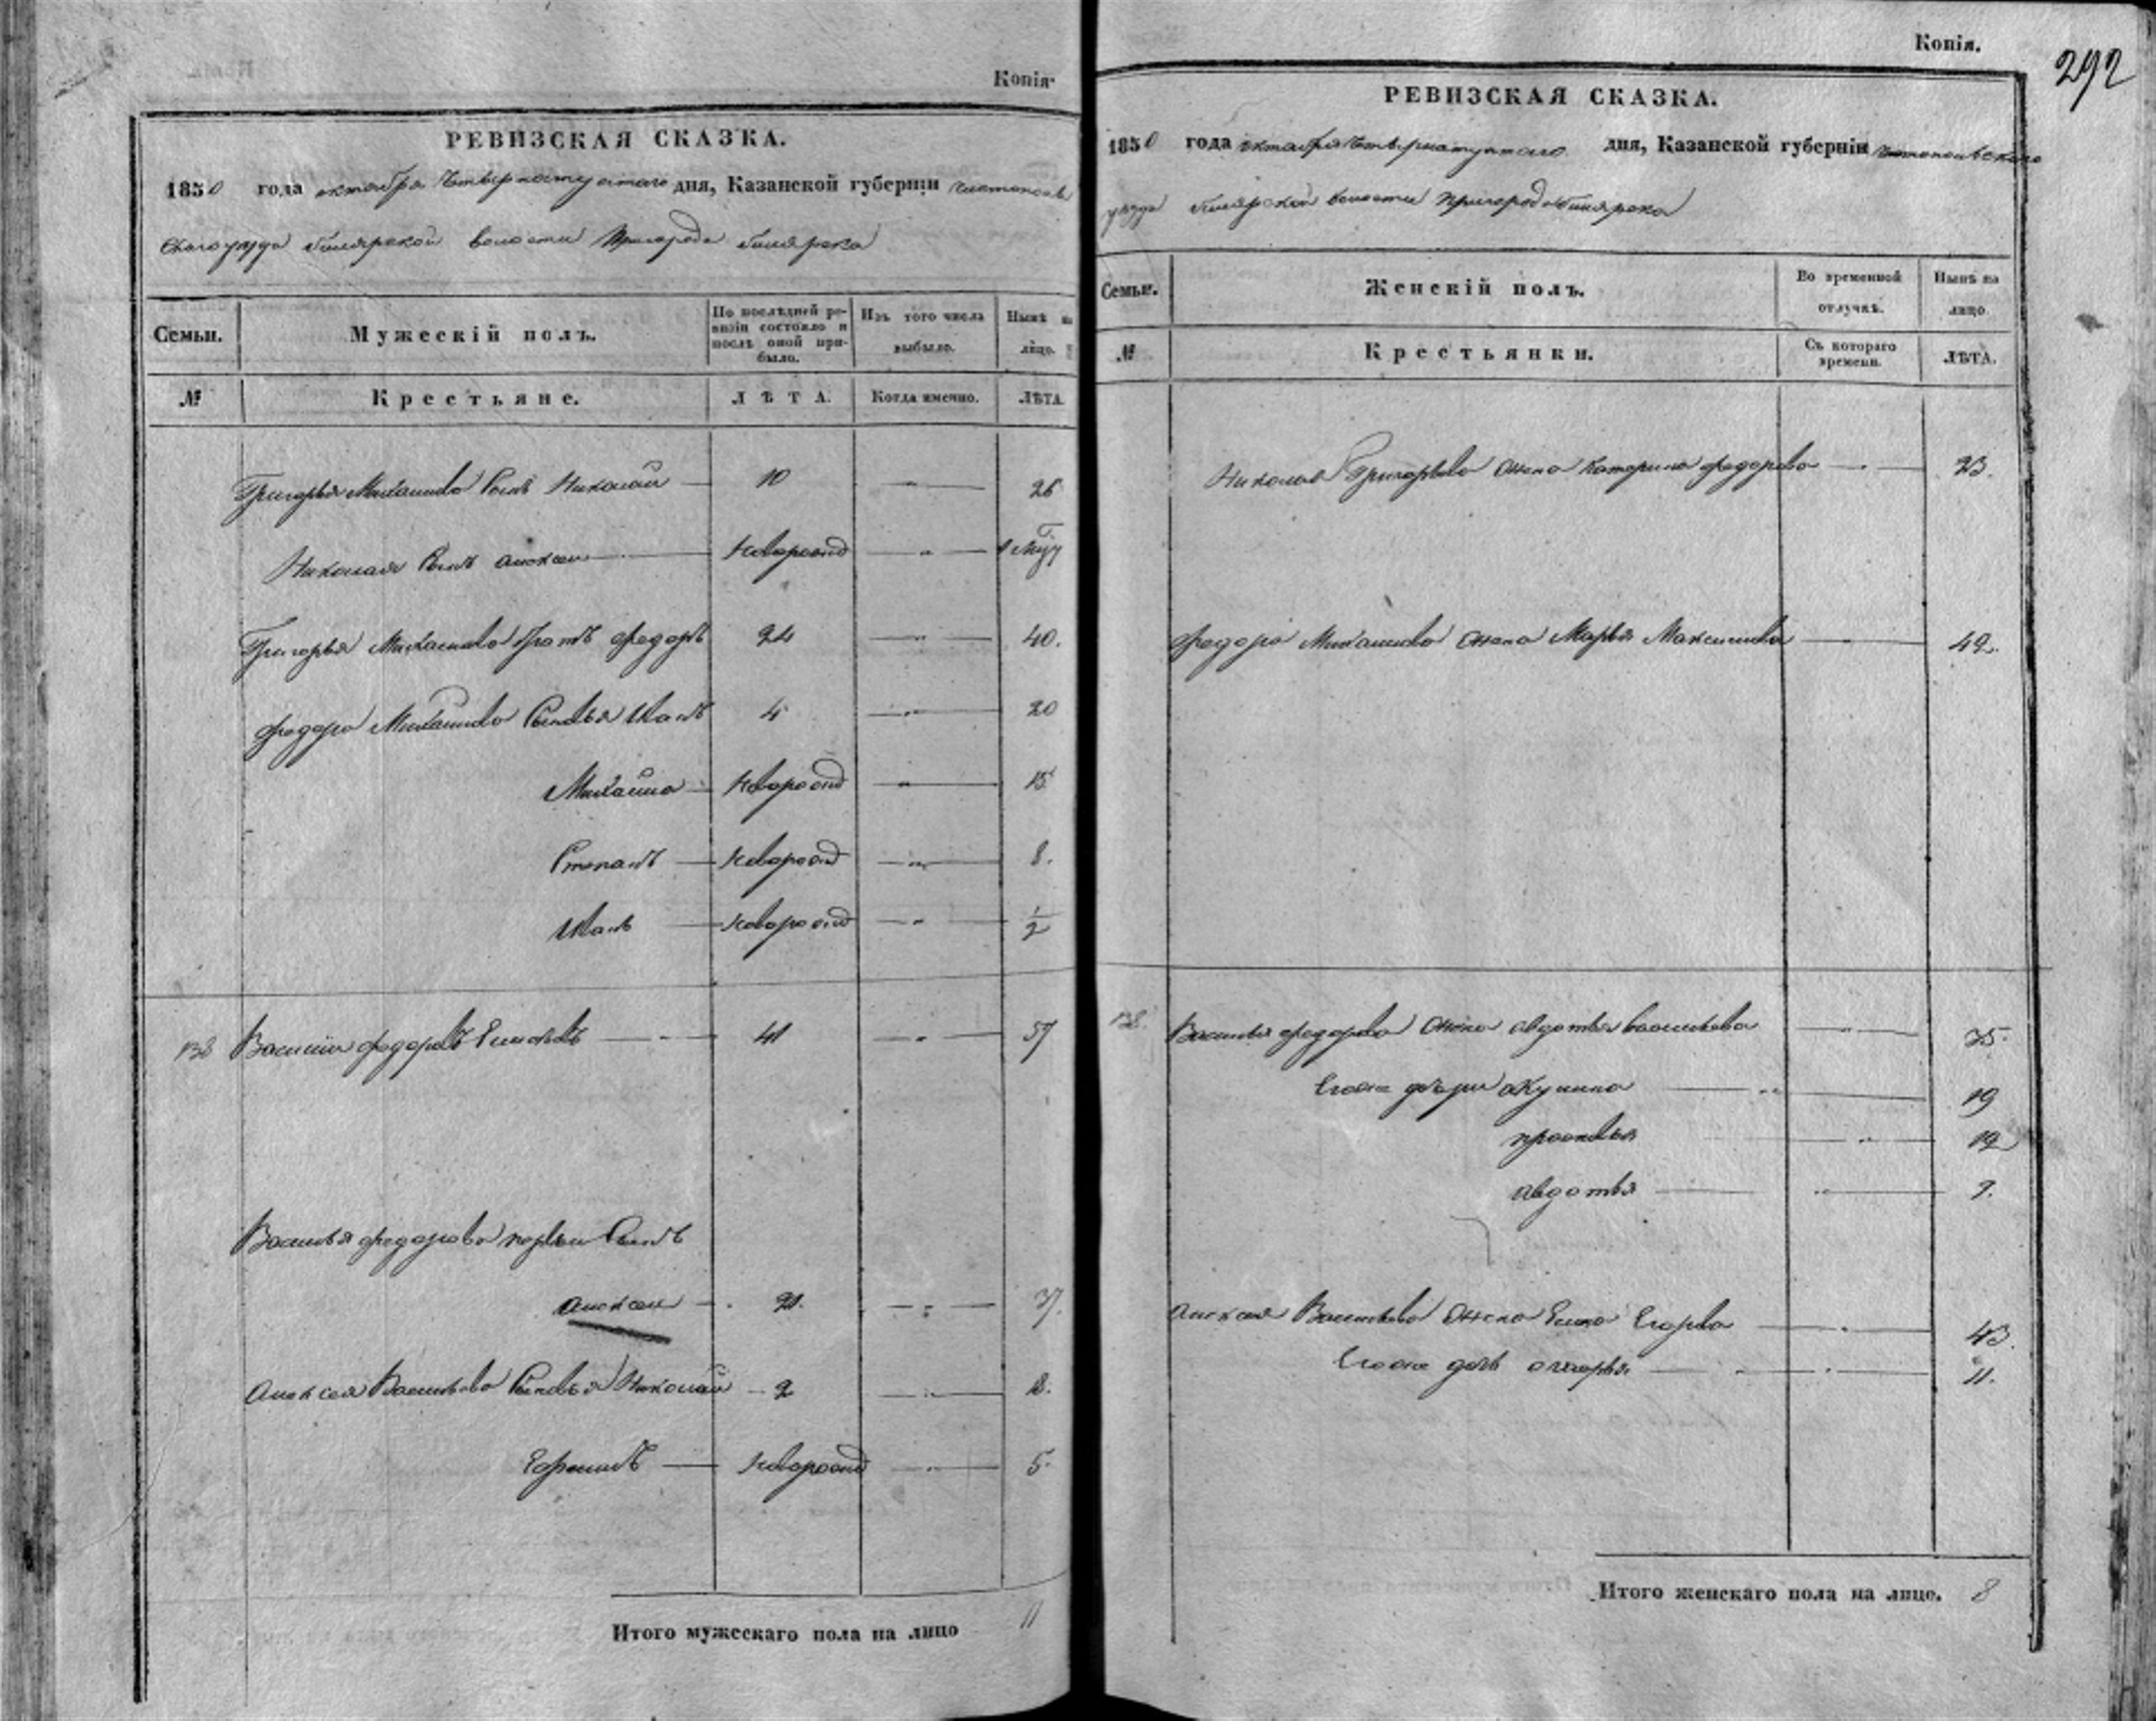 Копія.
РЕВИЗСКАЯ СКАЗКА.
1850 года октября четвертагонатцать дня, Казанской губерніи чистопольс
скаго уезда билярской волости пригорода билярска
Семьи. Мужескій полъ. По послѣдней ревизіи состояло и послѣ оной прибыло. Изъ того числа выбыло. Нынѣ на лицо.
№ Крестьяне. ЛѢТА. Когда именно. ЛѢТА.
Григорья Михаилова сынъ Николай 10 — " — 26
Николая сынъ алексеи новорожд — " —
Григорья Михаилова братъ федоръ 24 — " — 40.
федора Михаилова сыновья Иванъ 4 — " — 20
Михаила новорожд — " — 15
Степанъ новорожд — " — 8.
Иванъ новорожд — " — 1/2
138 Василий федоровъ — " — 41 — " — 57
Василья федорова первый сынъ
алексеи — 21. — " — 37.
Алексея Васильева сыновья Николай — 2 — " — 18.
Ефремъ новорожд — " — 5.
Итого мужескаго пола на лицо 11
Копія.
292
РЕВИЗСКАЯ СКАЗКА.
1850 года октября дня, Казанской губерніи чистопольскаго
уезда билярской волости пригорода билярска
Семьи. Женскій полъ. Во временной отлучкѣ. Нынѣ на лицо.
№ Крестьянки. Съ котораго времени. ЛѢТА.
Николая Григорьева жена Катерина федорова — " — 23.
федора Михаилова жена Марья Максимова — " — 42.
138. Василья федорова жена авдотья васильева — " — 35.
Егоже дочери акулина — " — 19
прасковья — " — 12
авдотья — " — 7.
алексея Васильева жена Елена Егорова — " — 43.
Егоже дочь — " — 11.
Итого женскаго пола на лицо. 8